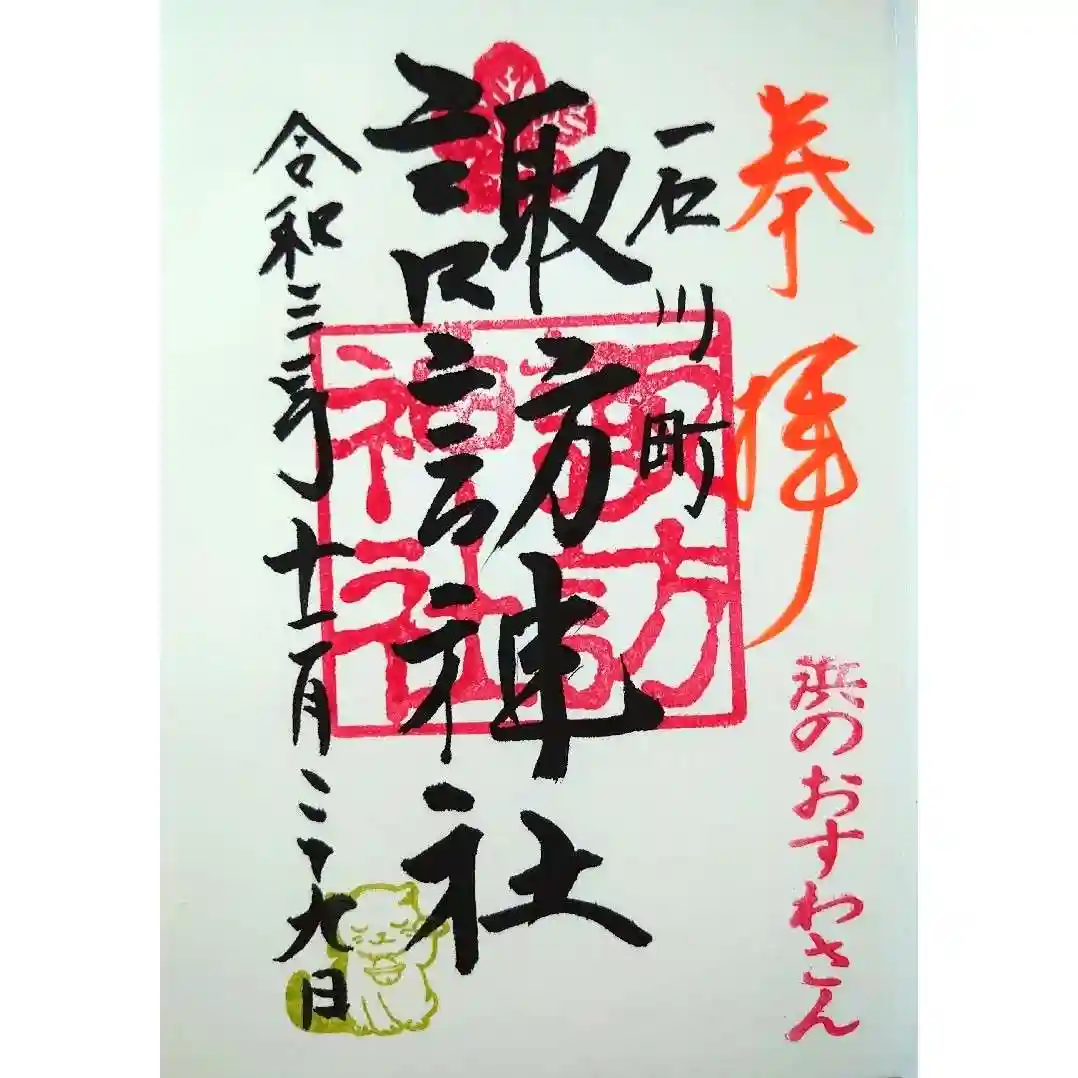 奉拝
浜のおすわさん
石川町
諏訪神社
諏訪神社
令和三年十二月二十九日